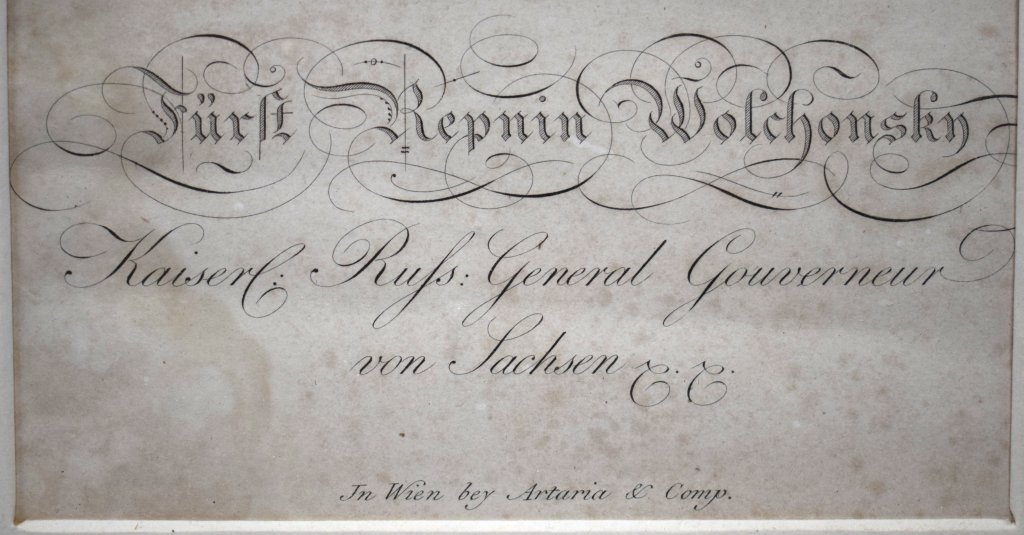 Fürst Repnin Wolchonsky
Kaiserl: Ruſs: General Gouverneur
von Sachsen &. &.
In Wien bey Artaria & Comp.